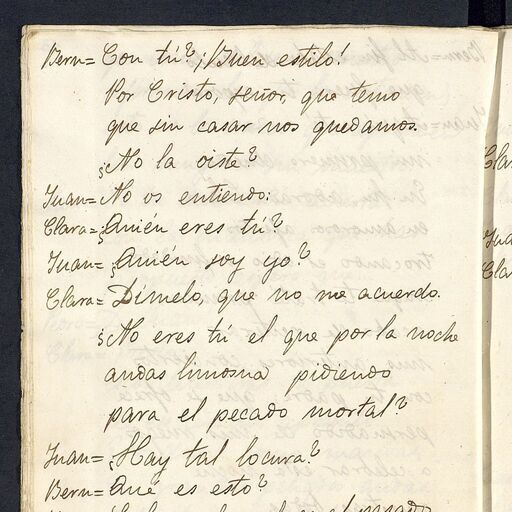 Bern= Con tú? ¡Buen estilo!
Por Cristo, señor, que temo
que sin casar nos quedamos.
¿No la oiste?
Juan= No os entiendo:
Clara= ¿Quién eres tú?
Juan= ¿Quién soy yo?
Clara= Dímelo, que no me acuerdo.
¿No eres tú el que por la noche
andas limosna pidiendo
para el pecado mortal?
Juan= ¿Hay tal locura?
Bern= Qué es esto?
Clar
Jua
Clar